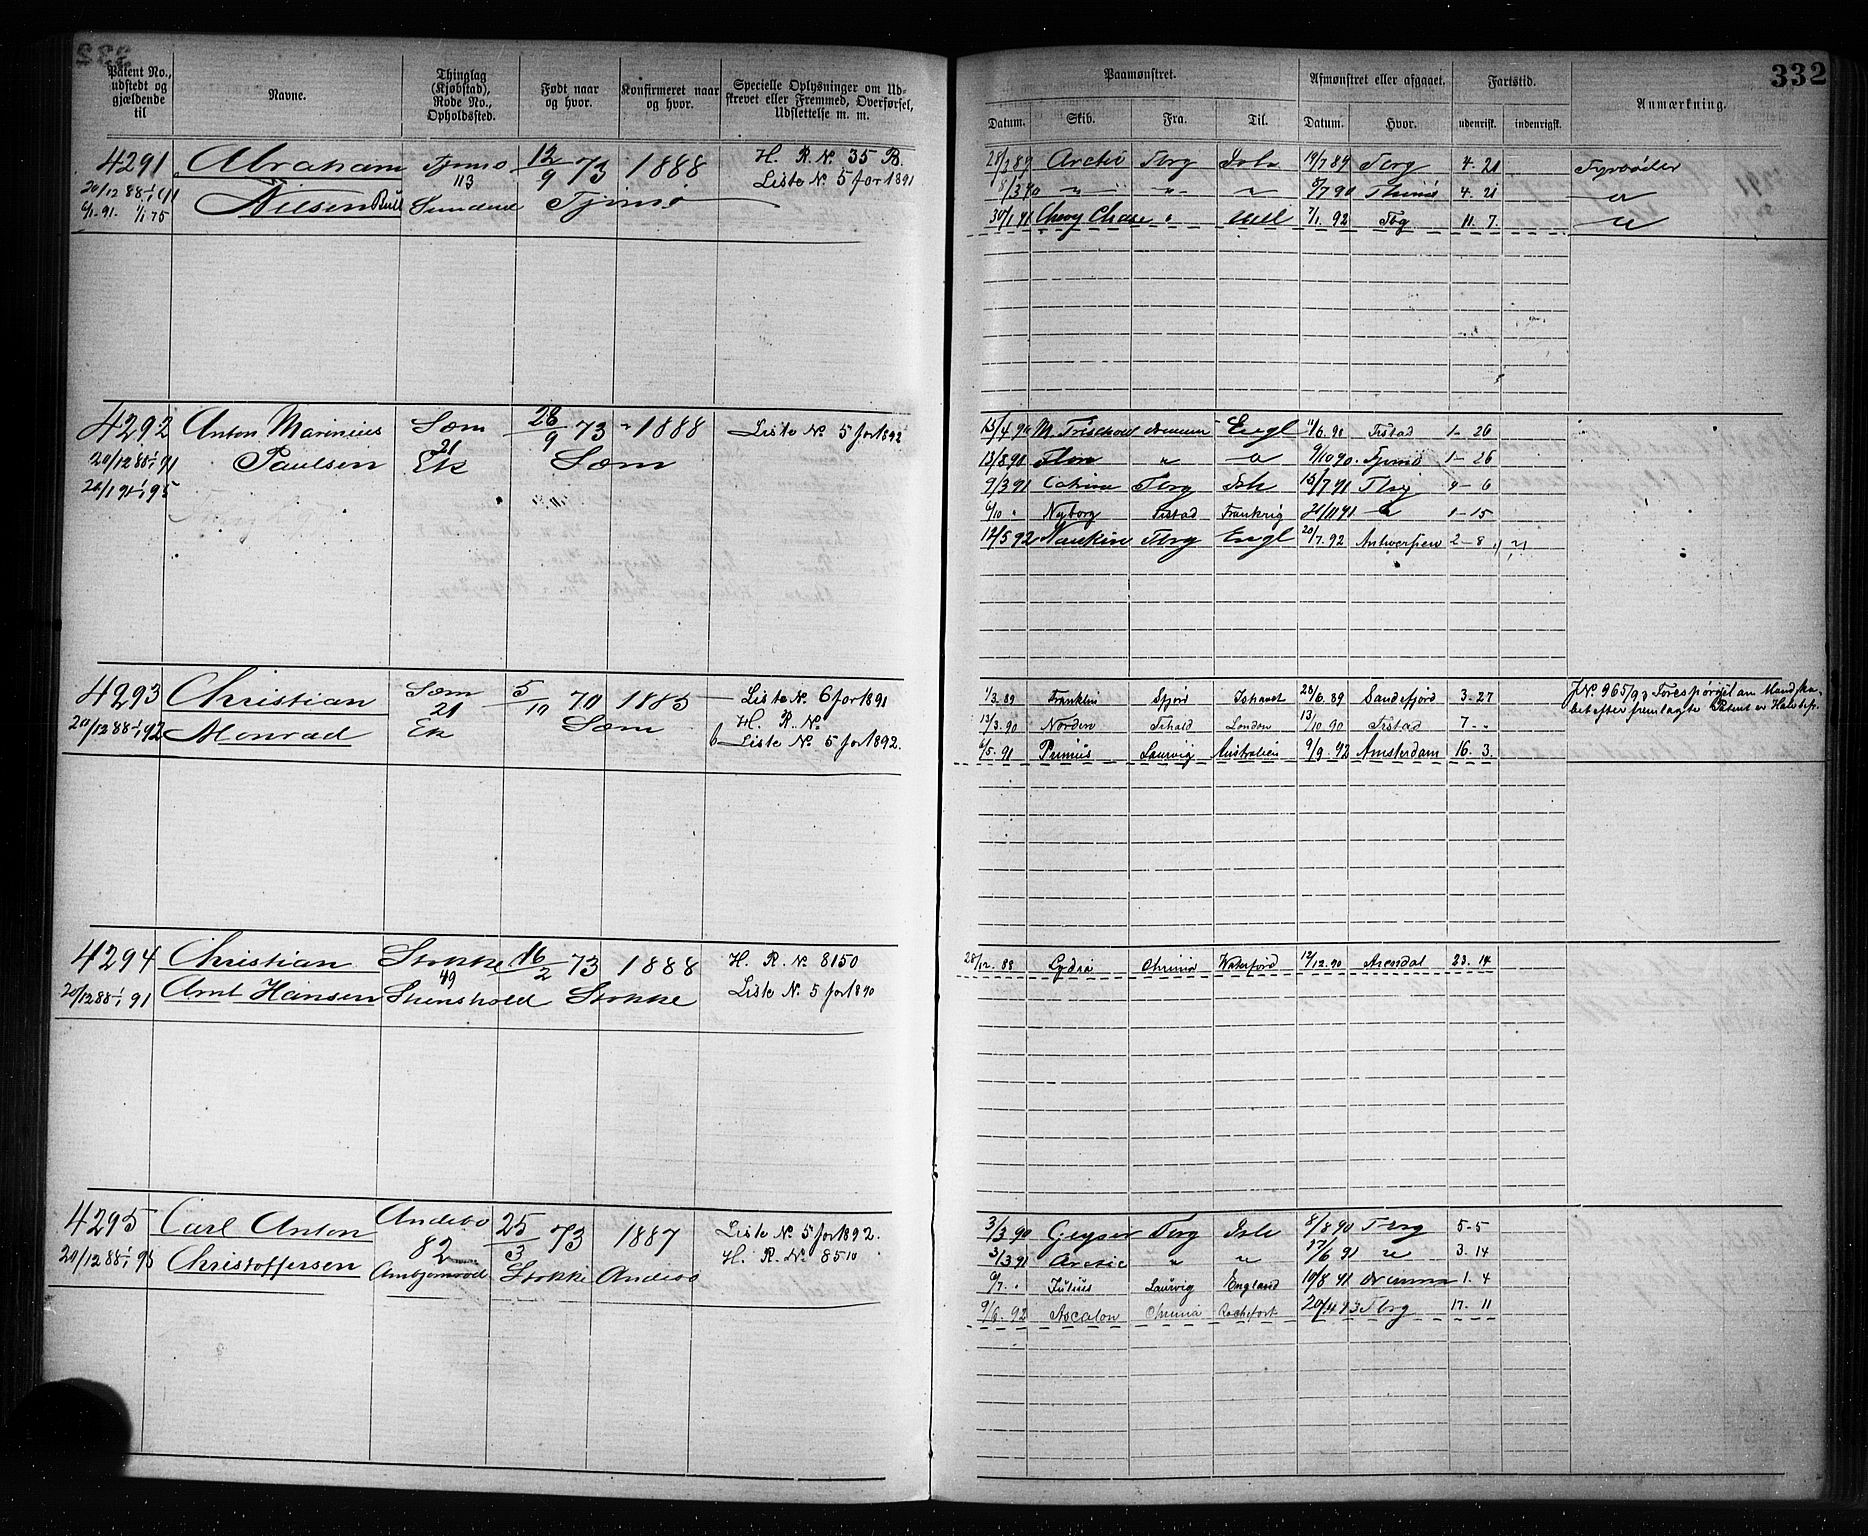 332
Patent No., udstedt og gjældende til
Navne.
Thinglag (Kjøbstad), Rode No., Opholdssted.
Født naar og hvor.
Konfirmeret naar og hvor.
Specielle Oplysninger om Udskrevet eller Fremmed, Overførsel, Udslettelse m. m.
Paamønstret.
Datum. Skib. Fra. Til.
Afmønstret eller afgaaet.
Datum. Hvor.
Fartstid.
udenrigsk. indenrigsk.
Anmærkning.
4291 Abraham Tjømø 12/9 73 1888 H. R. No. 35 B.
20/12 88 1/1 91 Nilsen Bull 113 Sundene Tjømø Liste No. 5 for 1891
6/1 91. 1/1 75
28/2 89 Arctic Tbrg Ishv 19/7 89 Tbrg 4. 21 Fyrbøder
8/3 90 " " " 8/7 90 4. 21 "
30/1 91 Chevy Chase " 7/1. 92 Tbg. 11. 7. "
4292 Anton Marinius Sem 28/9 73 1888 Liste No. 5 for 1892
20/12 88 1/1 91 Paulsen 21 Ek Sem
20/1 91 1/1 95
15/4 90 Engl 11/6. 90 Frstad 1- 26
13/8 90 " " 9/10 90. Tjømø 1- 26
9/3 91 Catrine Tbrg Ish 15/7 91 Tbrg 4- 6
6/10 " Nyborg Frstad Frankrig 21/11 91 " 1- 15
12/5 92 Nankin Tbrg Engl 20/7. 92 Antwerpen 2- 8
4293 Christian Sem 5/10 70 1885 Liste No. 6 for 1891
20/12 88 1/1 92 Monrad 21 Ek Sem H. R. No
Liste No. 5 for 1892.
1/3. 89 Franklin Sfjord Ishavet 28/6. 89 Sandefjord 3. 27 J No. 965/93 Forespørgsel om Mandska-
13/3. 90 Norden Frhald London 13/10 90 Frstad 7. " bet efter fremlagte Patent er Halvbef.
6/5. 91 Primus Laurvig Australien 9/9. 92 Amsterdam 16. 3.
4294 Christian Stokke 16/2 73 1888 H. R. No 8150
20/12 88 1/1 91 Arnt Hansen 49 Stenshold Stokke Liste No. 5 for 1890
28/12. 88 Lydia Chrania Waterford 12/12. 90 Arendal 23. 14
4295 Carl Anton Andebo 25/3 73 1887 Liste No. 5 for 1892.
20/12 88 1/1 95 Christoffersen 82 Stokke Andebo H. R. No. 8510
3/3. 90 Geyser Tbrg Ish 8/8 90 Tbrg 5-5
3/3 91 Arctic " " 17/6 91 " 3. 14
9/7. " Julius Laurvig England 10/8 91 Drammen 1. 4
9/6. 92 Ascalon Chrania Rochefort 20/4 93 Tbrg 17. 11